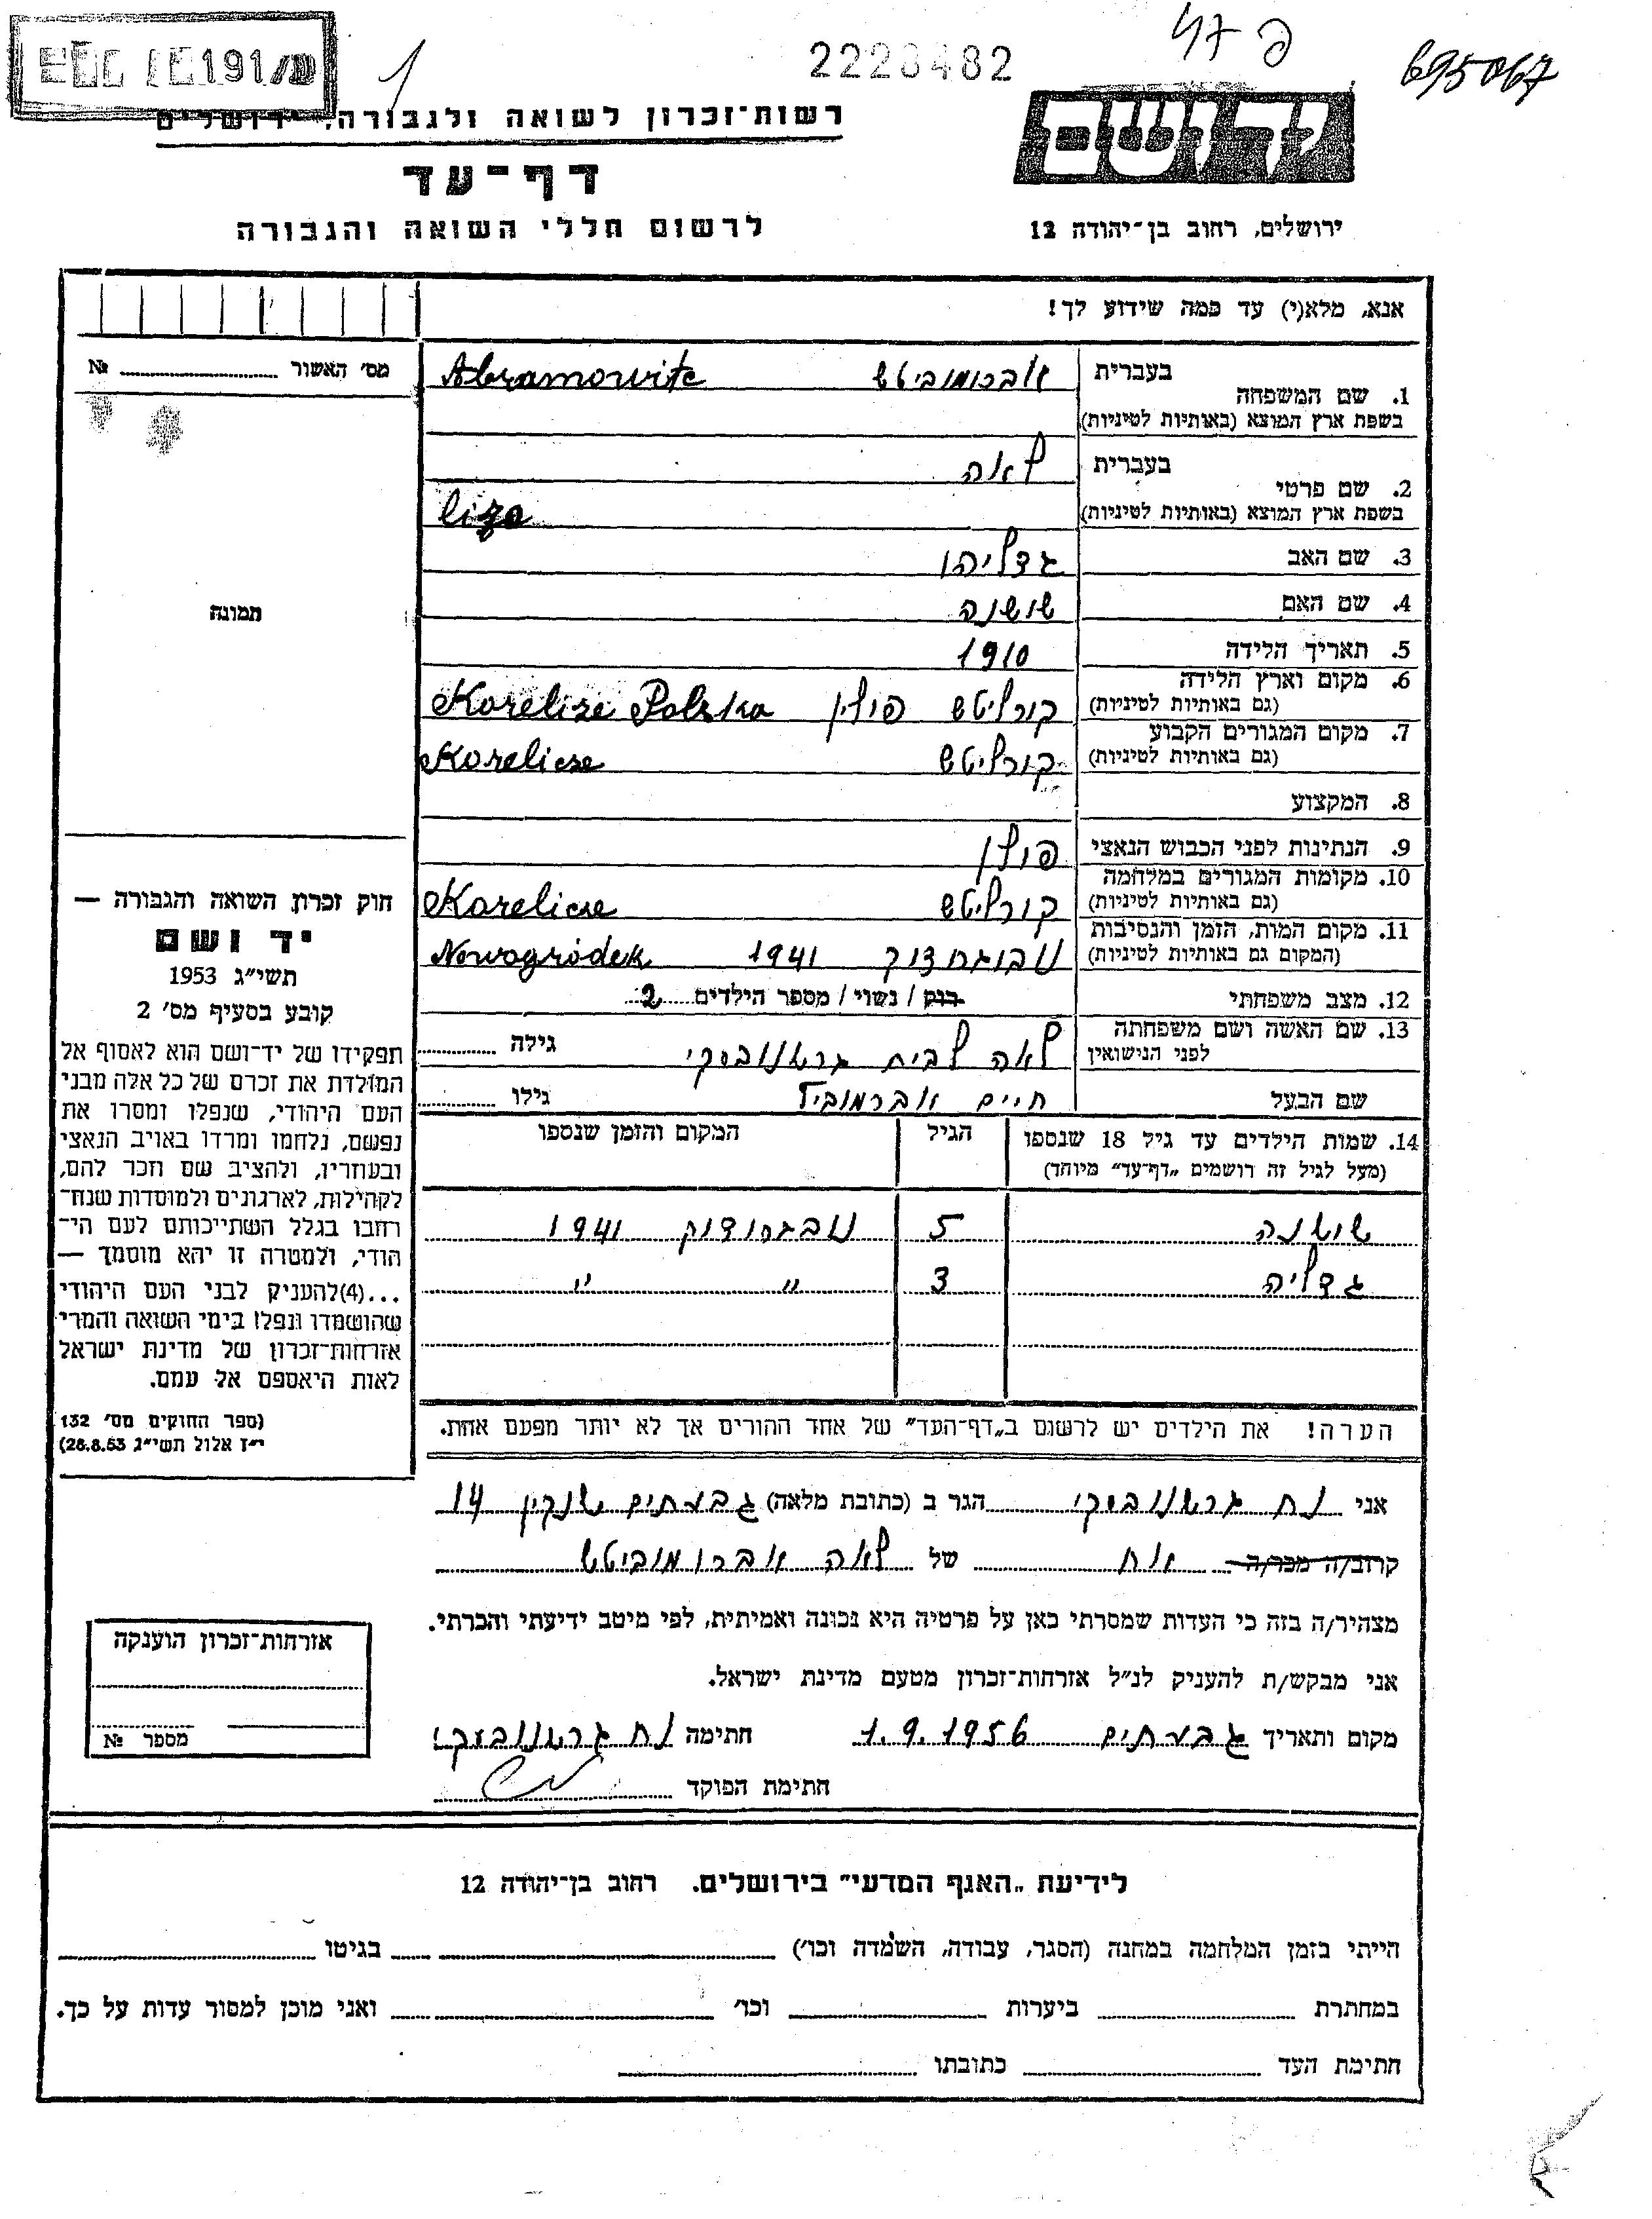 191/ש
1
2228482
פ 47
695067
רשות־זכרון לשואה ולגבורה, ירושלים
דף־עד
לרשום חללי השואה והגבורה
יד ושם
ירושלים, רחוב בן־יהודה 12
אנא, מלא(י) עד כמה שידוע לך!
מס' האשור № 
תמונה
1. שם המשפחה
בעברית אברמוביטש Abramowitz
בשפת ארץ המוצא (באותיות לטיניות)
2. שם פרטי
בעברית לאה
בשפת ארץ המוצא (באותיות לטיניות) liza
3. שם האב גדליהו
4. שם האם שושנה
5. תאריך הלידה 1910
6. מקום וארץ הלידה
(גם באותיות לטיניות) קורליטש פולין Korelize Polska
7. מקום המגורים הקבוע
(גם באותיות לטיניות) קורליטש Korelicze
8. המקצוע
9. הנתינות לפני הכבוש הנאצי פולין
10. מקומות המגורים במלחמה
(גם באותיות לטיניות) קורליטש Korelicze
11. מקום המות, הזמן והנסיבות
(המקום גם באותיות לטיניות) נובוגרודק 1941 Nowogródek
12. מצב משפחתי רוק / נשוי / מספר הילדים 2
13. שם האשה ושם משפחתה
לפני הנישואין לאה לבית גרשנובסקי גילה
שם הבעל חיים אברמוביץ גילו
14. שמות הילדים עד גיל 18 שנספו הגיל המקום והזמן שנספו
(מעל לגיל זה רושמים „דף־עד" מיוחד)
שושנה 5 נובגרודוק 1941
גדליה 3 " "
הערה! את הילדים יש לרשום ב„דף־העד" של אחד ההורים אך לא יותר מפעם אחת.
חוק זכרון השואה והגבורה —
יד ושם
תשי"ג 1953
קובע בסעיף מס' 2
תפקידו של יד־ושם הוא לאסוף אל
המולדת את זכרם של כל אלה מבני
העם היהודי, שנפלו ומסרו את
נפשם, נלחמו ומרדו באויב הנאצי
ובעוזריו, ולהציב שם וזכר להם,
לקהילות, לארגונים ולמוסדות שנח־
רבו בגלל השתייכותם לעם הי־
הודי, ולמטרה זו יהא מוסמך —
...(4)להעניק לבני העם היהודי
שהושמדו ונפלו בימי השואה והמרי
אזרחות־זכרון של מדינת ישראל
לאות היאספם אל עמם.
(ספר החוקים מס' 132
י"ז אלול תשי"ג, 28.8.53)
אני נח גרשנובסקי הגר ב (כתובת מלאה) גבעתים שנקין 14
קרוב/ה מכר/ה אח של לאה אברומוביטש
מצהיר/ה בזה כי העדות שמסרתי כאן על פרטיה היא נכונה ואמיתית, לפי מיטב ידיעתי והכרתי.
אני מבקש/ת להעניק לנ"ל אזרחות־זכרון מטעם מדינת ישראל.
מקום ותאריך גבעתים 1.9.1956 חתימה נח גרשנובסקי
חתימת הפוקד
אזרחות־זכרון הוענקה
מספר №
לידיעת „האגף המדעי" בירושלים. רחוב בן־יהודה 12
הייתי בזמן המלחמה במחנה (הסגר, עבודה, השמדה וכו') בגיטו
במחתרת ביערות וכו' ואני מוכן למסור עדות על כך.
חתימת העד כתובתו